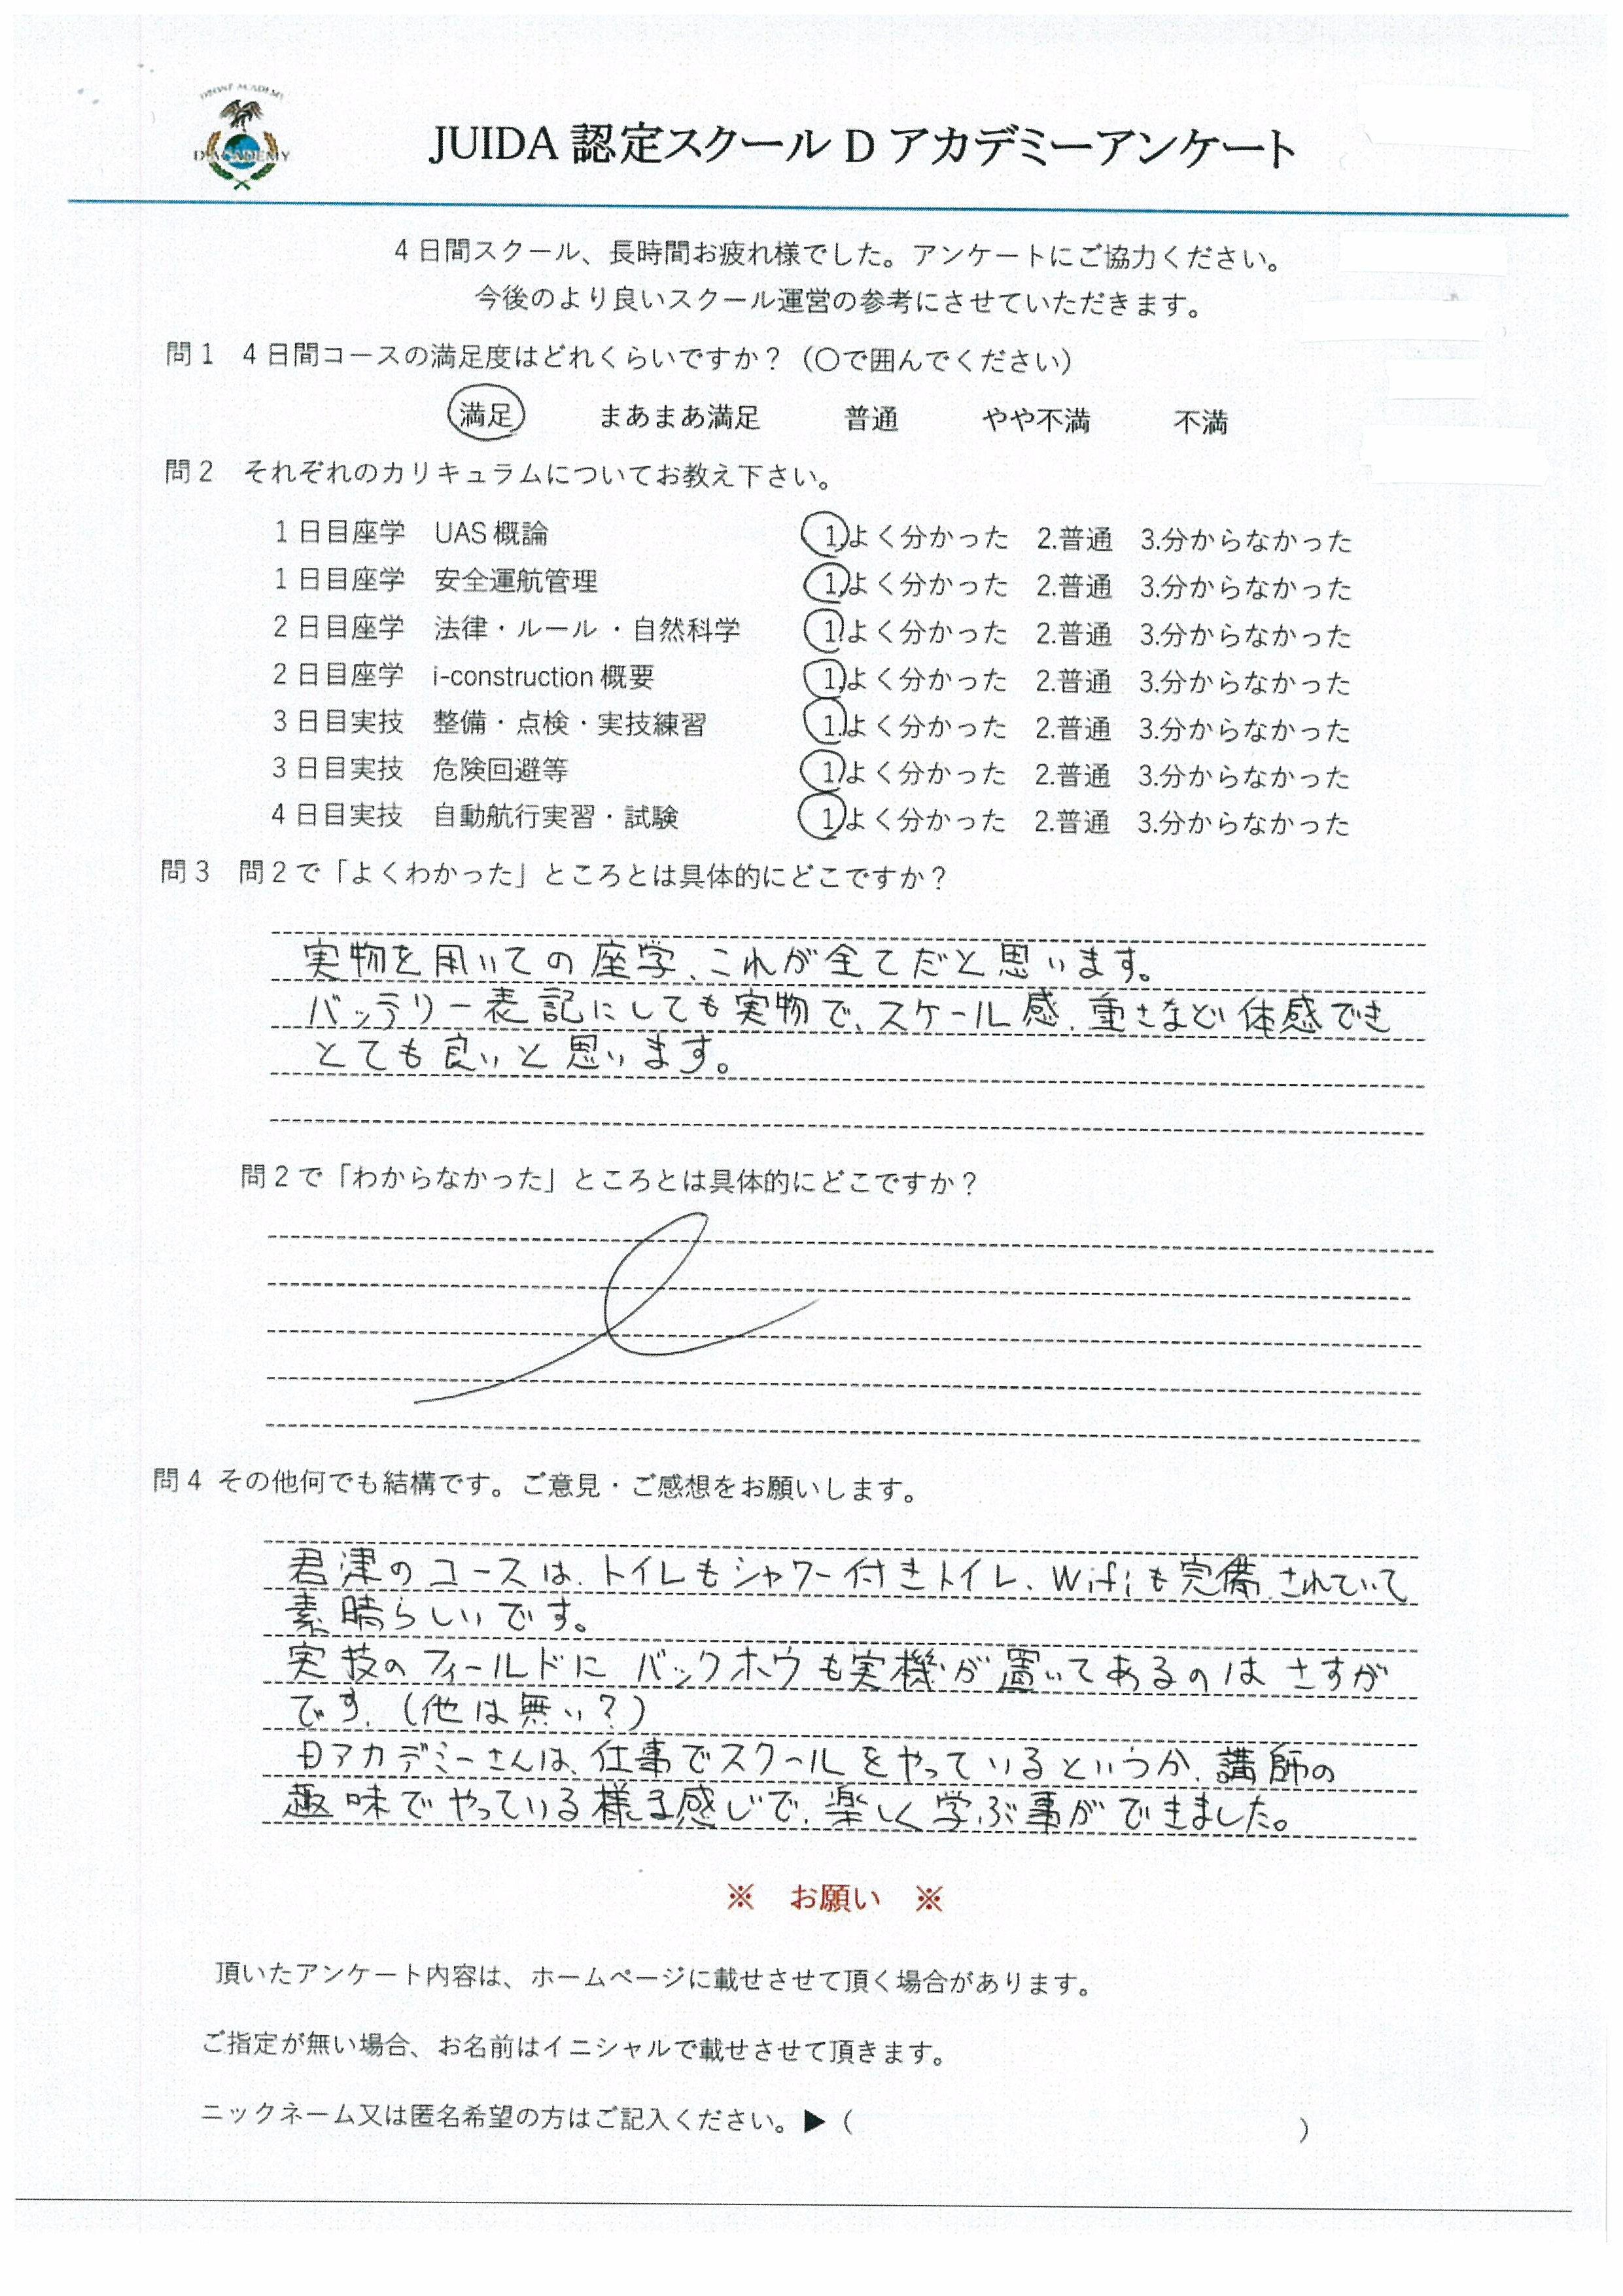 DRONE ACADEMY
D ACADEMY
JUIDA 認定スクール D アカデミーアンケート
4 日間スクール、長時間お疲れ様でした。アンケートにご協力ください。
今後のより良いスクール運営の参考にさせていただきます。
問 1 4 日間コースの満足度はどれくらいですか？（〇で囲んでください）
満足 まあまあ満足 普通 やや不満 不満
問 2 それぞれのカリキュラムについてお教え下さい。
1 日目座学 UAS 概論 1.よく分かった 2.普通 3.分からなかった
1 日目座学 安全運航管理 1.よく分かった 2.普通 3.分からなかった
2 日目座学 法律・ルール・自然科学 1.よく分かった 2.普通 3.分からなかった
2 日目座学 i-construction 概要 1.よく分かった 2.普通 3.分からなかった
3 日目実技 整備・点検・実技練習 1.よく分かった 2.普通 3.分からなかった
3 日目実技 危険回避等 1.よく分かった 2.普通 3.分からなかった
4 日目実技 自動航行実習・試験 1.よく分かった 2.普通 3.分からなかった
問 3 問 2 で「よくわかった」ところとは具体的にどこですか？
実物を用いての座学、これが全てだと思います。
バッテリー表記にしても実物で、スケール感、重さなど体感でき
とても良いと思います。
問 2 で「わからなかった」ところとは具体的にどこですか？
問 4 その他何でも結構です。ご意見・ご感想をお願いします。
君津のコースは、トイレもシャワー付きトイレ、Wifiも完備されていて
素晴らしいです。
実技のフィールドにバックホウも実機が置いてあるのはさすが
です。(他は無い？)
Dアカデミーさんは、仕事でスクールをやっているというか、講師の
趣味でやっている様な感じで、楽しく学ぶ事ができました。
※ お願い ※
頂いたアンケート内容は、ホームページに載せさせて頂く場合があります。
ご指定が無い場合、お名前はイニシャルで載せさせて頂きます。
ニックネーム又は匿名希望の方はご記入ください。▶（ ）